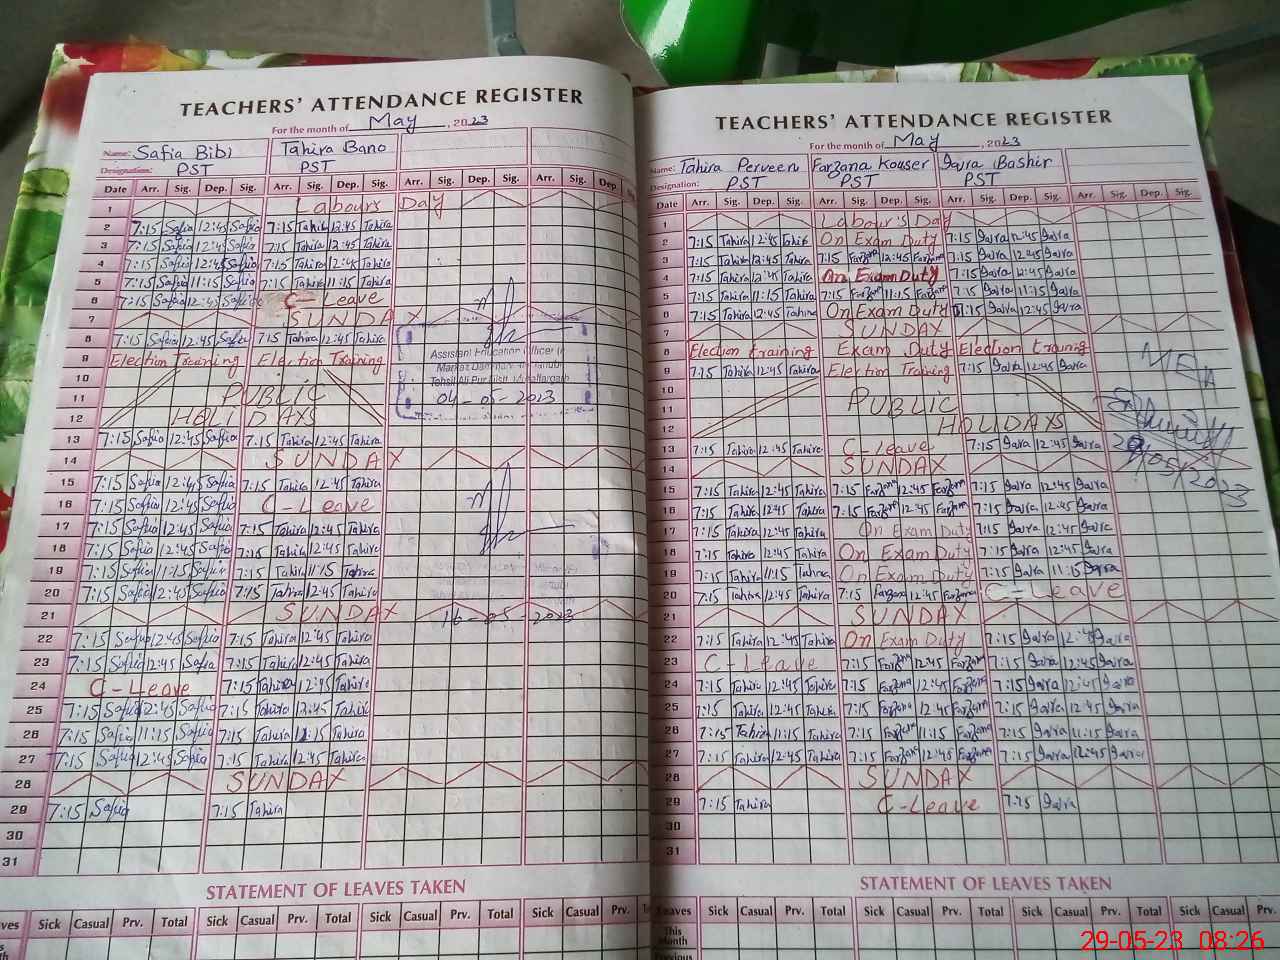 TEACHERS' ATTENDANCE REGISTER
For the month of May, 2023
Name: Safia Bibi Tahira Bano
Designation: PST PST
Date Arr. Sig. Dep. Sig. Arr. Sig. Dep. Sig. Arr. Sig. Dep. Sig. Arr. Sig. Dep.
1 Labours Day
2 7:15 Safia 12:45 Safia 7:15 Tahira 12:45 Tahira
3 7:15 Safia 12:45 Safia 7:15 Tahira 12:45 Tahira
4 7:15 Safia 12:45 Safia 7:15 Tahira 12:45 Tahira
5 7:15 Safia 11:15 Safia 7:15 Tahira 11:15 Tahira
6 7:15 Safia 12:45 Safia C-Leave
7 SUNDAY
8 7:15 Safia 12:45 Safia 7:15 Tahira 12:45 Tahira
9 Election Training Election Training
10
11 PUBLIC
12 HOLIDAYS
13 7:15 Safia 12:45 Safia 7:15 Tahira 12:45 Tahira
14 SUNDAY
15 7:15 Safia 12:45 Safia 7:15 Tahira 12:45 Tahira
16 7:15 Safia 12:45 Safia C-Leave
17 7:15 Safia 12:45 Safia 7:15 Tahira 12:45 Tahira
18 7:15 Safia 12:45 Safia 7:15 Tahira 12:45 Tahira
19 7:15 Safia 11:15 Safia 7:15 Tahira 11:15 Tahira
20 7:15 Safia 12:45 Safia 7:15 Tahira 12:45 Tahira
21 SUNDAY
22 7:15 Safia 12:45 Safia 7:15 Tahira 12:45 Tahira
23 7:15 Safia 12:45 Safia 7:15 Tahira 12:45 Tahira
24 C-Leave 7:15 Tahira 12:45 Tahira
25 7:15 Safia 12:45 Safia 7:15 Tahira 12:45 Tahira
26 7:15 Safia 11:15 Safia 7:15 Tahira 11:15 Tahira
27 7:15 Safia 12:45 Safia 7:15 Tahira 12:45 Tahira
28 SUNDAY
29 7:15 Safia 7:15 Tahira
30
31
Assistant Education Officer
Tehsil Ali Pur
04-05-2023
16-05-2023
STATEMENT OF LEAVES TAKEN
Sick Casual Prv. Total Sick Casual Prv. Total Sick Casual Prv. Total Sick Casual Prv.
TEACHERS' ATTENDANCE REGISTER
For the month of May, 2023
Name: Tahira Perveen Farzana Kouser Iqra Bashir
Designation: PST PST PST
Date Arr. Sig. Dep. Sig. Arr. Sig. Dep. Sig. Arr. Sig. Dep. Sig. Arr. Sig. Dep. Sig.
1 Labour's Day
2 7:15 Tahira 12:45 Tahira On Exam Duty 7:15 Iqra 12:45 Iqra
3 7:15 Tahira 12:45 Tahira 7:15 Farzana 12:45 Farzana 7:15 Iqra 12:45 Iqra
4 7:15 Tahira 12:45 Tahira On Exam Duty 7:15 Iqra 12:45 Iqra
5 7:15 Tahira 11:15 Tahira 7:15 Farzana 11:15 Farzana 7:15 Iqra 11:15 Iqra
6 7:15 Tahira 12:45 Tahira On Exam Duty 7:15 Iqra 12:45 Iqra
7 SUNDAY
8 Election training Exam Duty Election training
9 7:15 Tahira 12:45 Tahira Election Training 7:15 Iqra 12:45 Iqra
10
11 PUBLIC
12 HOLIDAYS
13 7:15 Tahira 12:45 Tahira C-Leave 7:15 Iqra 12:45 Iqra
14 SUNDAY
15 7:15 Tahira 12:45 Tahira 7:15 Farzana 12:45 Farzana 7:15 Iqra 12:45 Iqra
16 7:15 Tahira 12:45 Tahira 7:15 Farzana 12:45 Farzana 7:15 Iqra 12:45 Iqra
17 7:15 Tahira 12:45 Tahira On Exam Duty 7:15 Iqra 12:45 Iqra
18 7:15 Tahira 12:45 Tahira On Exam Duty 7:15 Iqra 12:45 Iqra
19 7:15 Tahira 11:15 Tahira On Exam Duty 7:15 Iqra 11:15 Iqra
20 7:15 Tahira 12:45 Tahira 7:15 Farzana 12:45 Farzana C-Leave
21 SUNDAY
22 7:15 Tahira 12:45 Tahira On Exam Duty 7:15 Iqra 12:45 Iqra
23 C-Leave 7:15 Farzana 12:45 Farzana 7:15 Iqra 12:45 Iqra
24 7:15 Tahira 12:45 Tahira 7:15 Farzana 12:45 Farzana 7:15 Iqra 12:45 Iqra
25 7:15 Tahira 12:45 Tahira 7:15 Farzana 12:45 Farzana 7:15 Iqra 12:45 Iqra
26 7:15 Tahira 11:15 Tahira 7:15 Farzana 11:15 Farzana 7:15 Iqra 11:15 Iqra
27 7:15 Tahira 12:45 Tahira 7:15 Farzana 12:45 Farzana 7:15 Iqra 12:45 Iqra
28 SUNDAY
29 7:15 Tahira C-Leave 7:15 Iqra
30
31
MEA
/05/2023
STATEMENT OF LEAVES TAKEN
Leaves Sick Casual Prv. Total Sick Casual Prv. Total Sick Casual Prv. Total Sick Casual Prv.
This Month
Previous
29-05-23 08:26